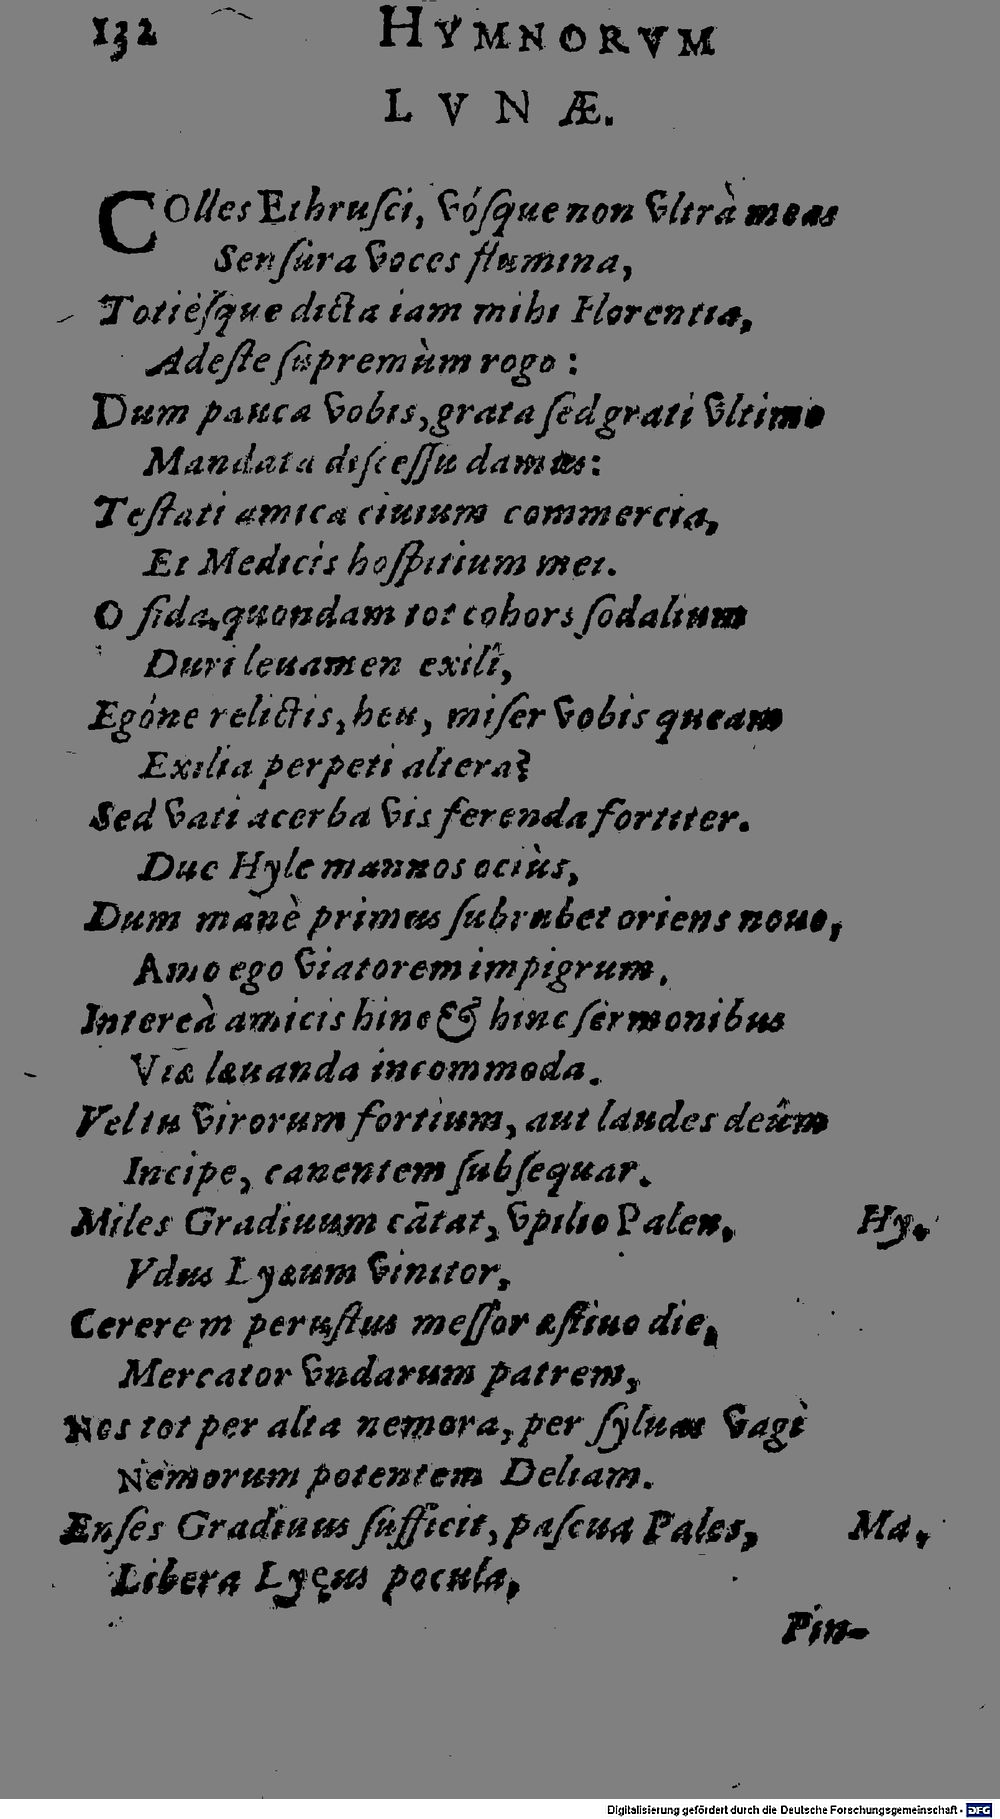 132 HYMNORVM
LVNÆ.
COlles Ethruſci, vóſque non vltrà meas
Senſura voces flumina,
Totiéſque dicta iam mihi Florentia,
Adeſte ſupremùm rogo :
Dum pauca vobis, grata ſed grati vltimo
Mandata diſceſſu damus:
Teſtati amica ciuium commercia,
Et Medicis hoſpitium mei.
O fida quondam tot cohors ſodalium
Duri leuamen exilî,
Egóne relictis, heu, miſer vobis queam
Exilia perpeti altera?
Sed vati acerba vis ferenda fortiter.
Duc Hyle mannos ociùs,
Dum manè primus ſubrubet oriens nouo,
Amo ego viatorem impigrum.
Intereà amicis hinc & hinc ſermonibus
Viæ læuanda incommoda.
Vel tu virorum fortium, aut laudes deûm
Incipe, canentem ſubſequar.
Miles Gradiuum cātat, vpilio Palen, Hy.
Vdus Lyæum vinitor,
Cererem peruſtus meſſor æſtiuo die,
Mercator vndarum patrem,
Nos tot per alta nemora, per ſyluas vagi
Nemorum potentem Deliam.
Enſes Gradiuus ſufficit, paſcua Pales, Ma.
Libera Lyęus pocula,
Pin-
Digitalisierung gefördert durch die Deutsche Forschungsgemeinschaft - DFG